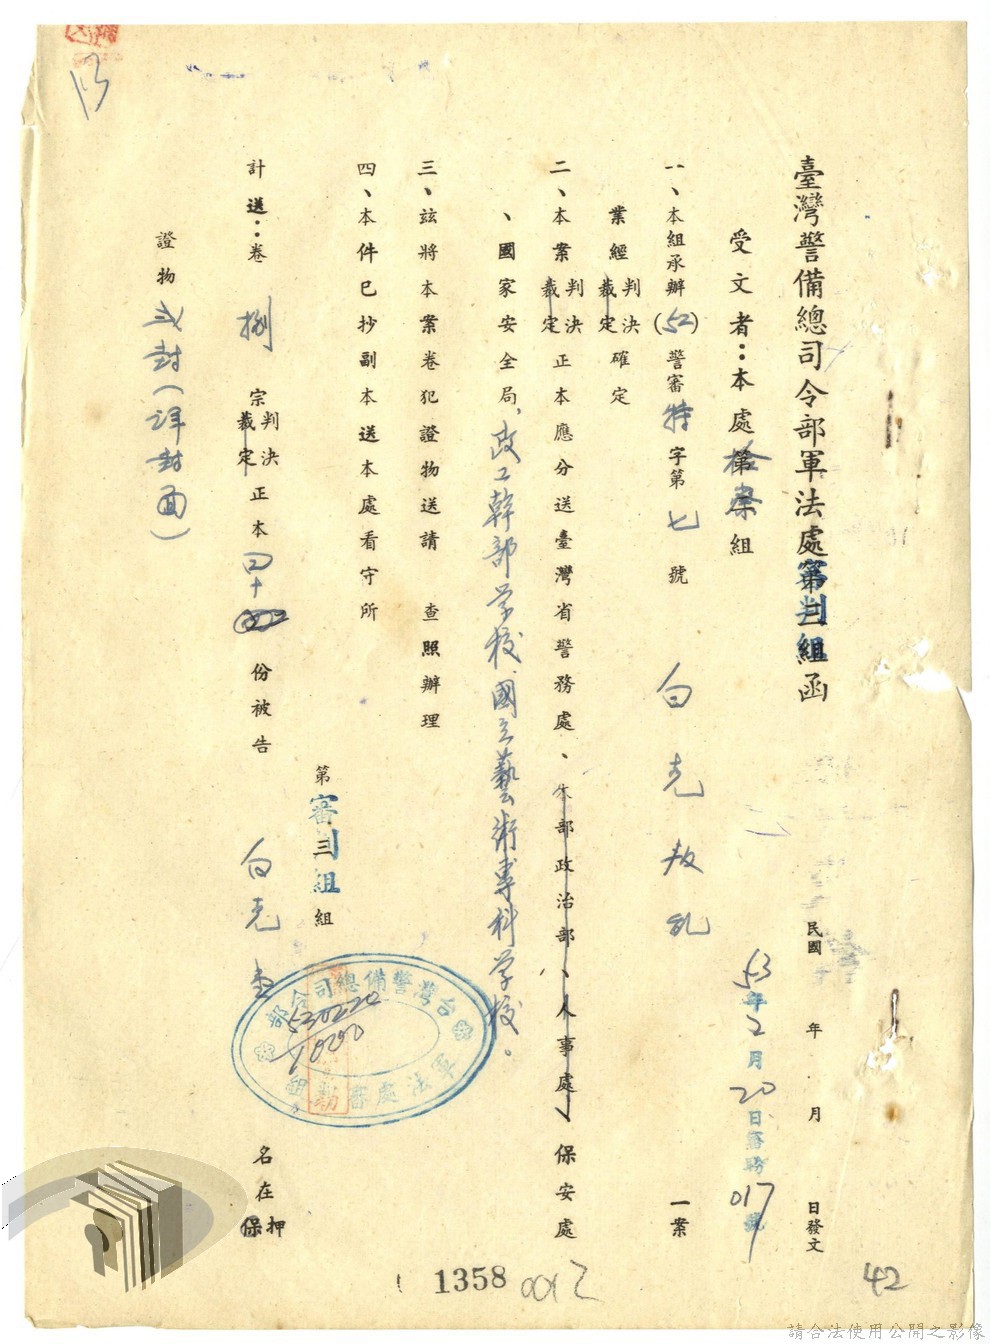 臺灣警備總司令部軍法處審判組函
民國 年 月 日發文
53年2月20日審務017號
受文者：本處檢察組
一、本組承辦(52)警審特字第七號 白克叛亂 一案
業經判決裁定確定
二、本案判決裁定正本應分送臺灣省警務處、本部政治部、人事處、保安處
、國家安全局，政工幹部学校、國立藝術專科学校。
三、茲將本案卷犯證物送請 查照辦理
四、本件已抄副本送本處看守所
第三組
審判組
計送：卷 捌 宗判決裁定正本 四十 份被告 白克 壹 名在押保
證物 弍封（詳封面）
台灣警備總司令部
軍法處審判組
530220
1000
13
1358
0012
42
請合法使用公開之影像